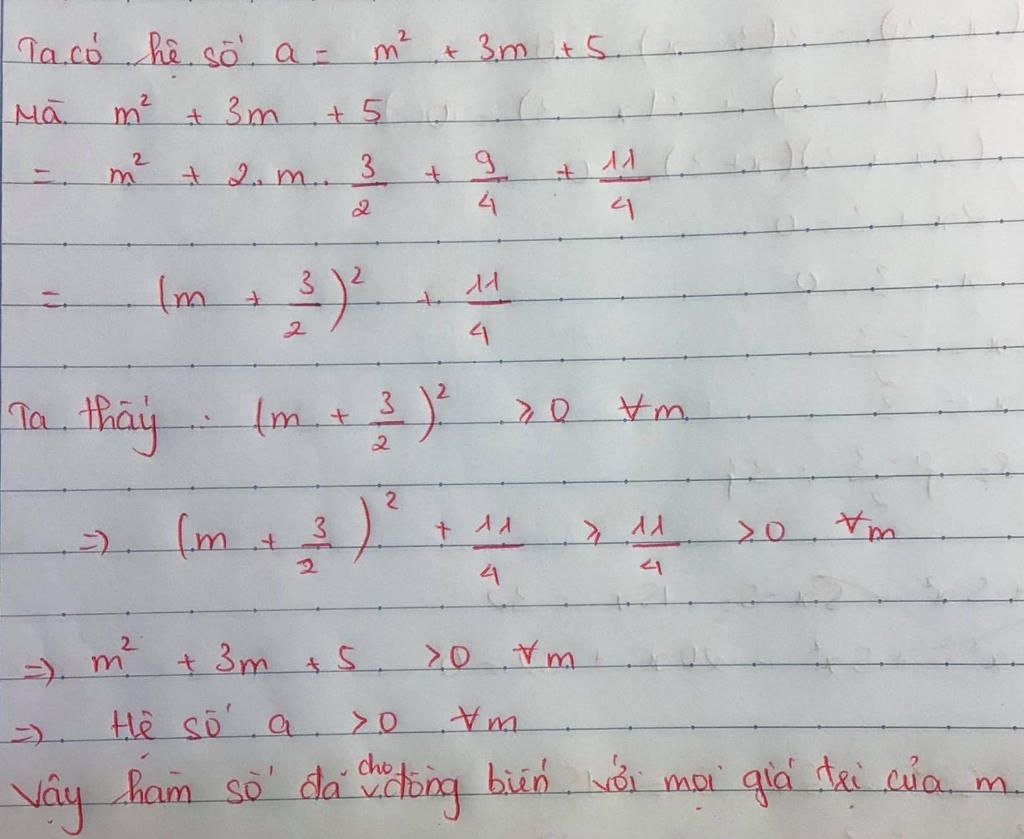 Ta có hệ số a = m² + 3m + 5
Mà m² + 3m + 5
= m² + 2.m. 3/2 + 9/4 + 11/4
= (m + 3/2)² + 11/4
Ta thấy : (m + 3/2)² ≥ 0 ∀m
=> (m + 3/2)² + 11/4 ≥ 11/4 > 0 ∀m
=> m² + 3m + 5 > 0 ∀m
=> Hệ số a > 0 ∀m
Vậy hàm số đã cho đồng biến với mọi giá trị của m